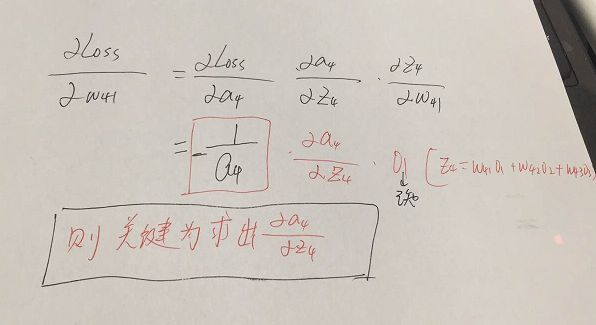 ∂Loss/∂w41 = ∂Loss/∂a4 ∂a4/∂z4 · ∂z4/∂w41
= -1/a4 · ∂a4/∂z4 · o1 [z4=w41o1+w42o2+w43o3]
已知
则关键为求出∂a4/∂z4